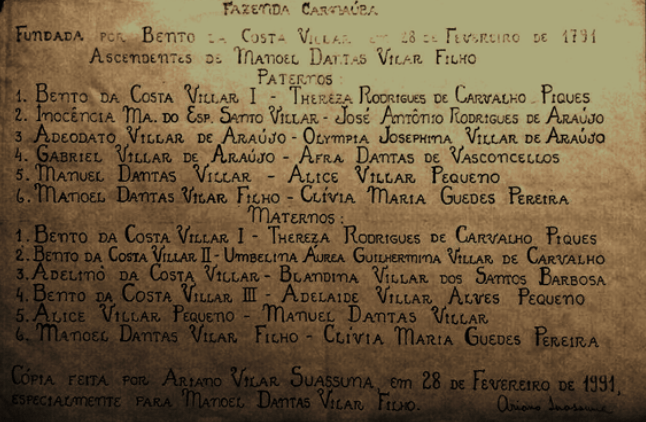 Fazenda Carnaúba
Fundada por Bento da Costa Villar em 28 de Fevereiro de 1791
Ascendentes de Manoel Dantas Vilar Filho
Paternos:
1. Bento da Costa Villar I - Thereza Rodrigues de Carvalho Piques
2. Inocência Ma. do Esp. Santo Villar - José Antônio Rodrigues de Araújo
3 Adeodato Villar de Araújo - Olympia Josephina Villar de Araújo
4. Gabriel Villar de Araújo - Afra Dantas de Vasconcellos
5. Manuel Dantas Villar - Alice Villar Pequeno
6. Manoel Dantas Vilar Filho - Clívia Maria Guedes Pereira
Maternos:
1. Bento da Costa Villar I - Thereza Rodrigues de Carvalho Piques
2. Bento da Costa Villar II - Umbelina Áurea Guilhermina Villar de Carvalho
3. Adelino da Costa Villar - Blandina Villar dos Santos Barbosa
4. Bento da Costa Villar III - Adelaide Villar Alves Pequeno
5. Alice Villar Pequeno - Manuel Dantas Villar
6. Manoel Dantas Vilar Filho - Clívia Maria Guedes Pereira
Cópia feita por Ariano Vilar Suassuna, em 28 de Fevereiro de 1991,
especialmente para Manoel Dantas Vilar Filho. Ariano Suassuna